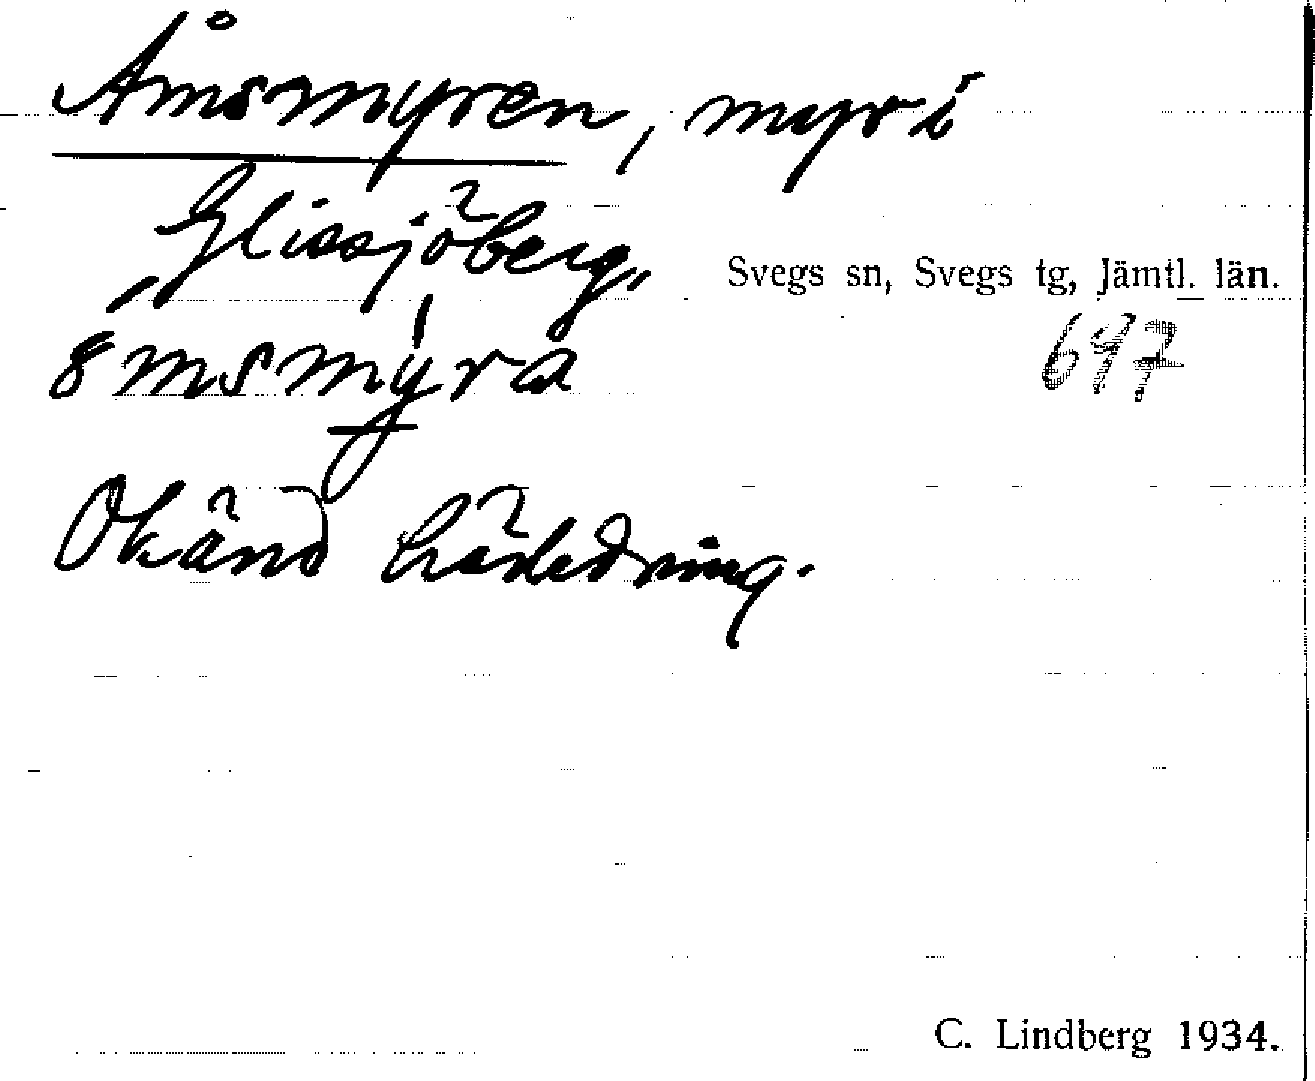 Åmsmyren, myr i
Glissjöberg,
Svegs sn, Svegs tg, Jämtl. län.
697
Okänd härledning.
C. Lindberg 1934.